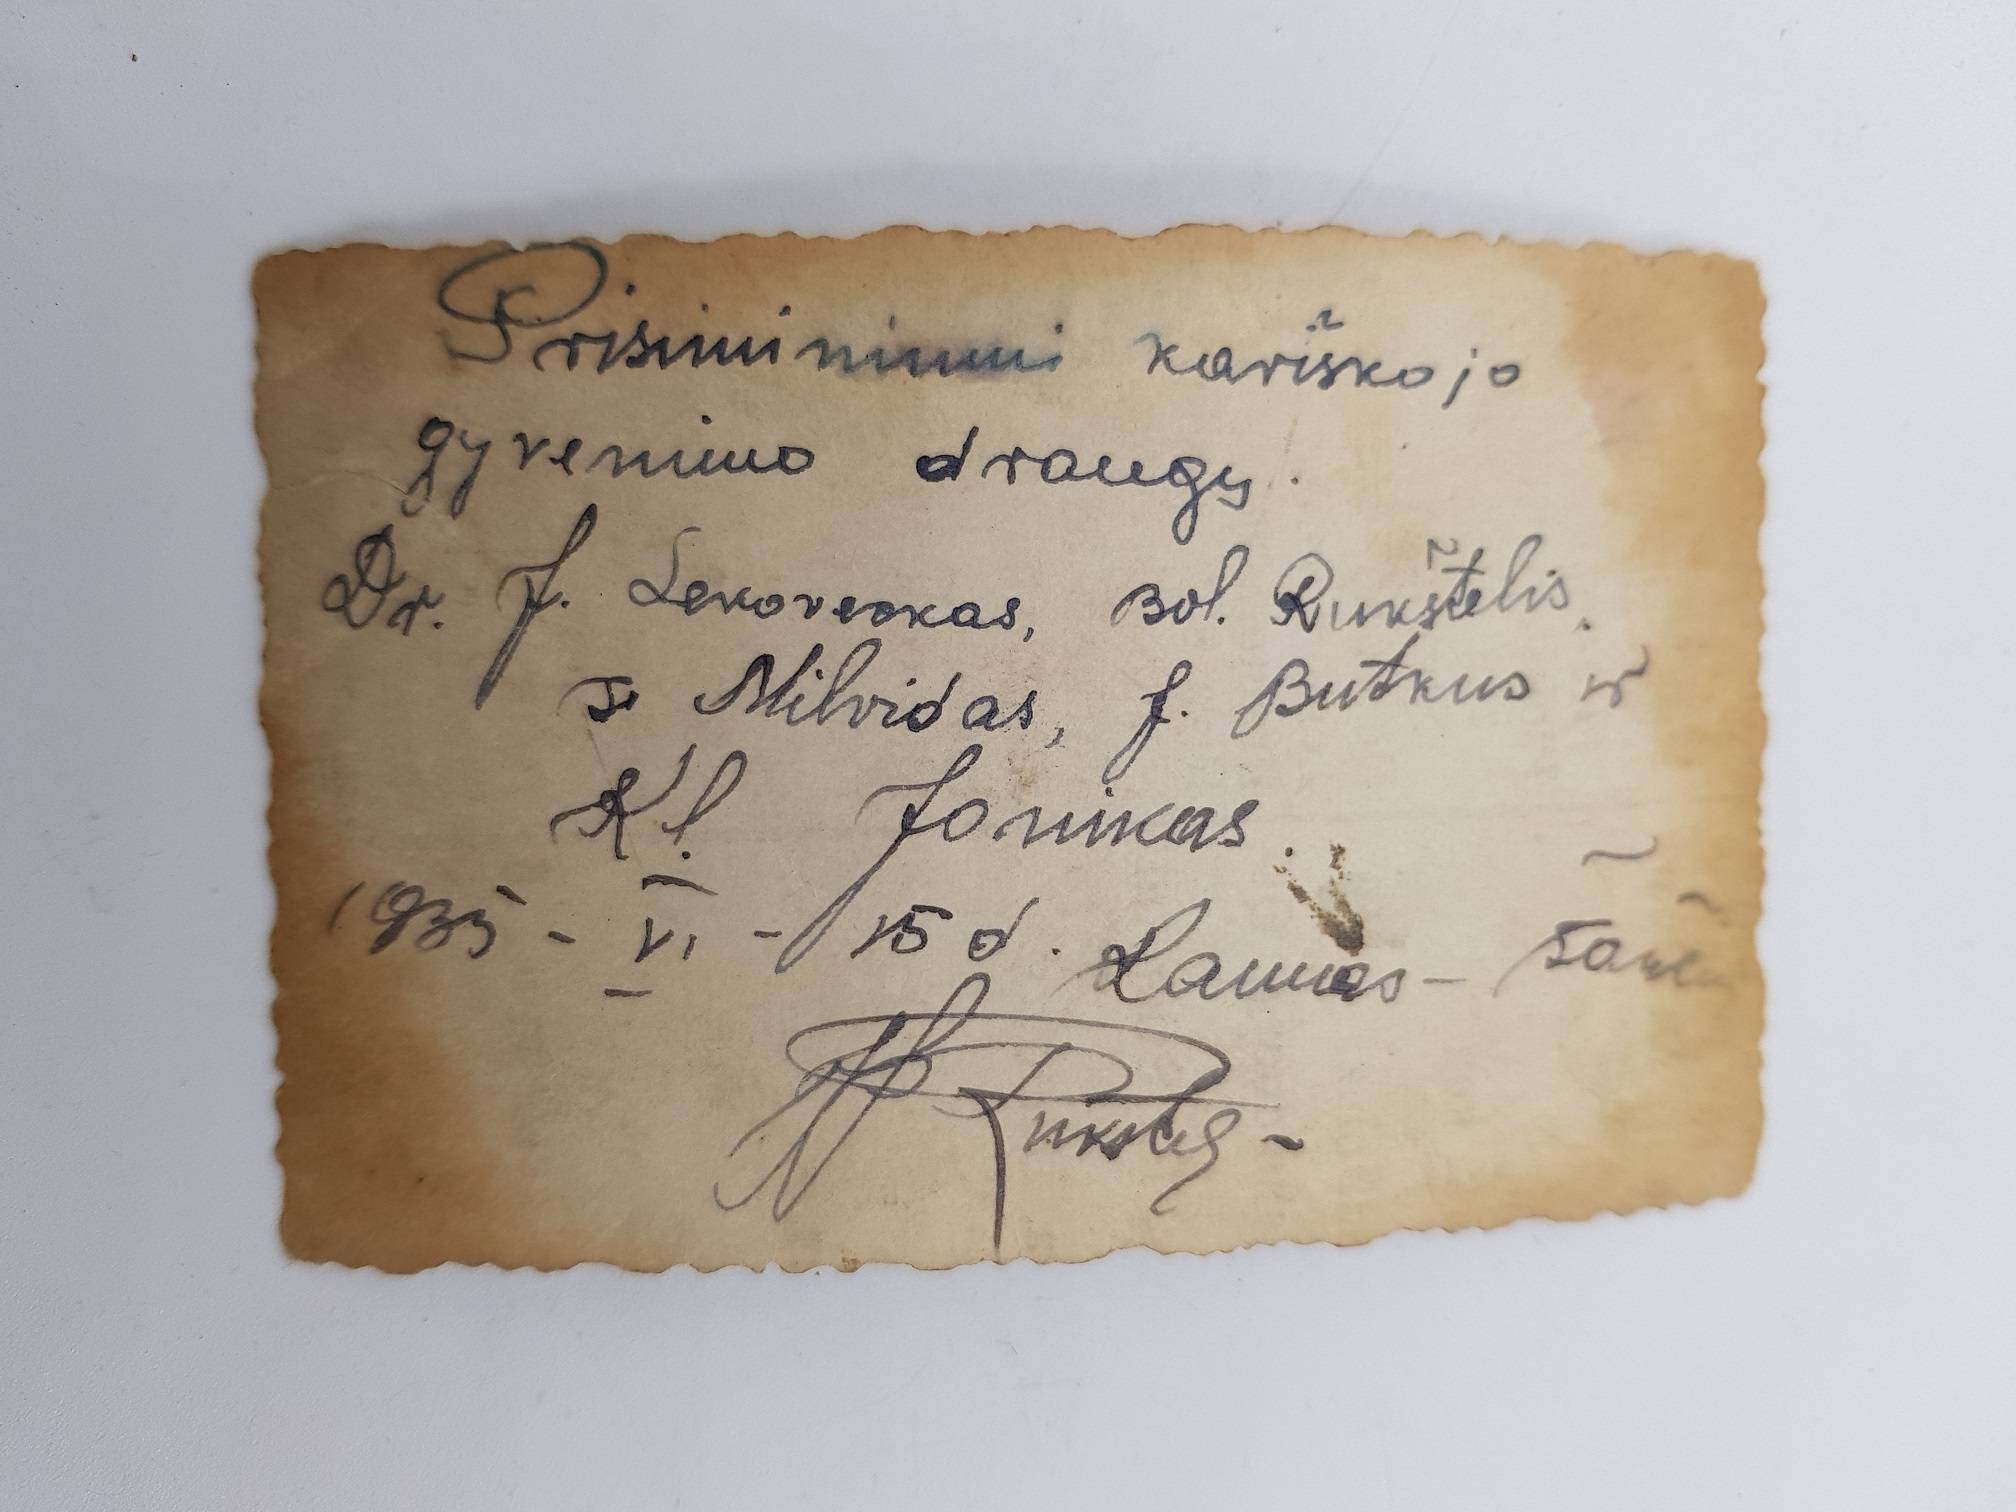 Prisiminimui kariškojo
gyvenimo draugų.
Dr. J. Lekoveckas, Bol. Rukštelis,
J. Milvidas, J. Butkus ir
Kl. Jonikas.
1935 - VI - 15 d. Kaunas - Šančiai
Rukštelis